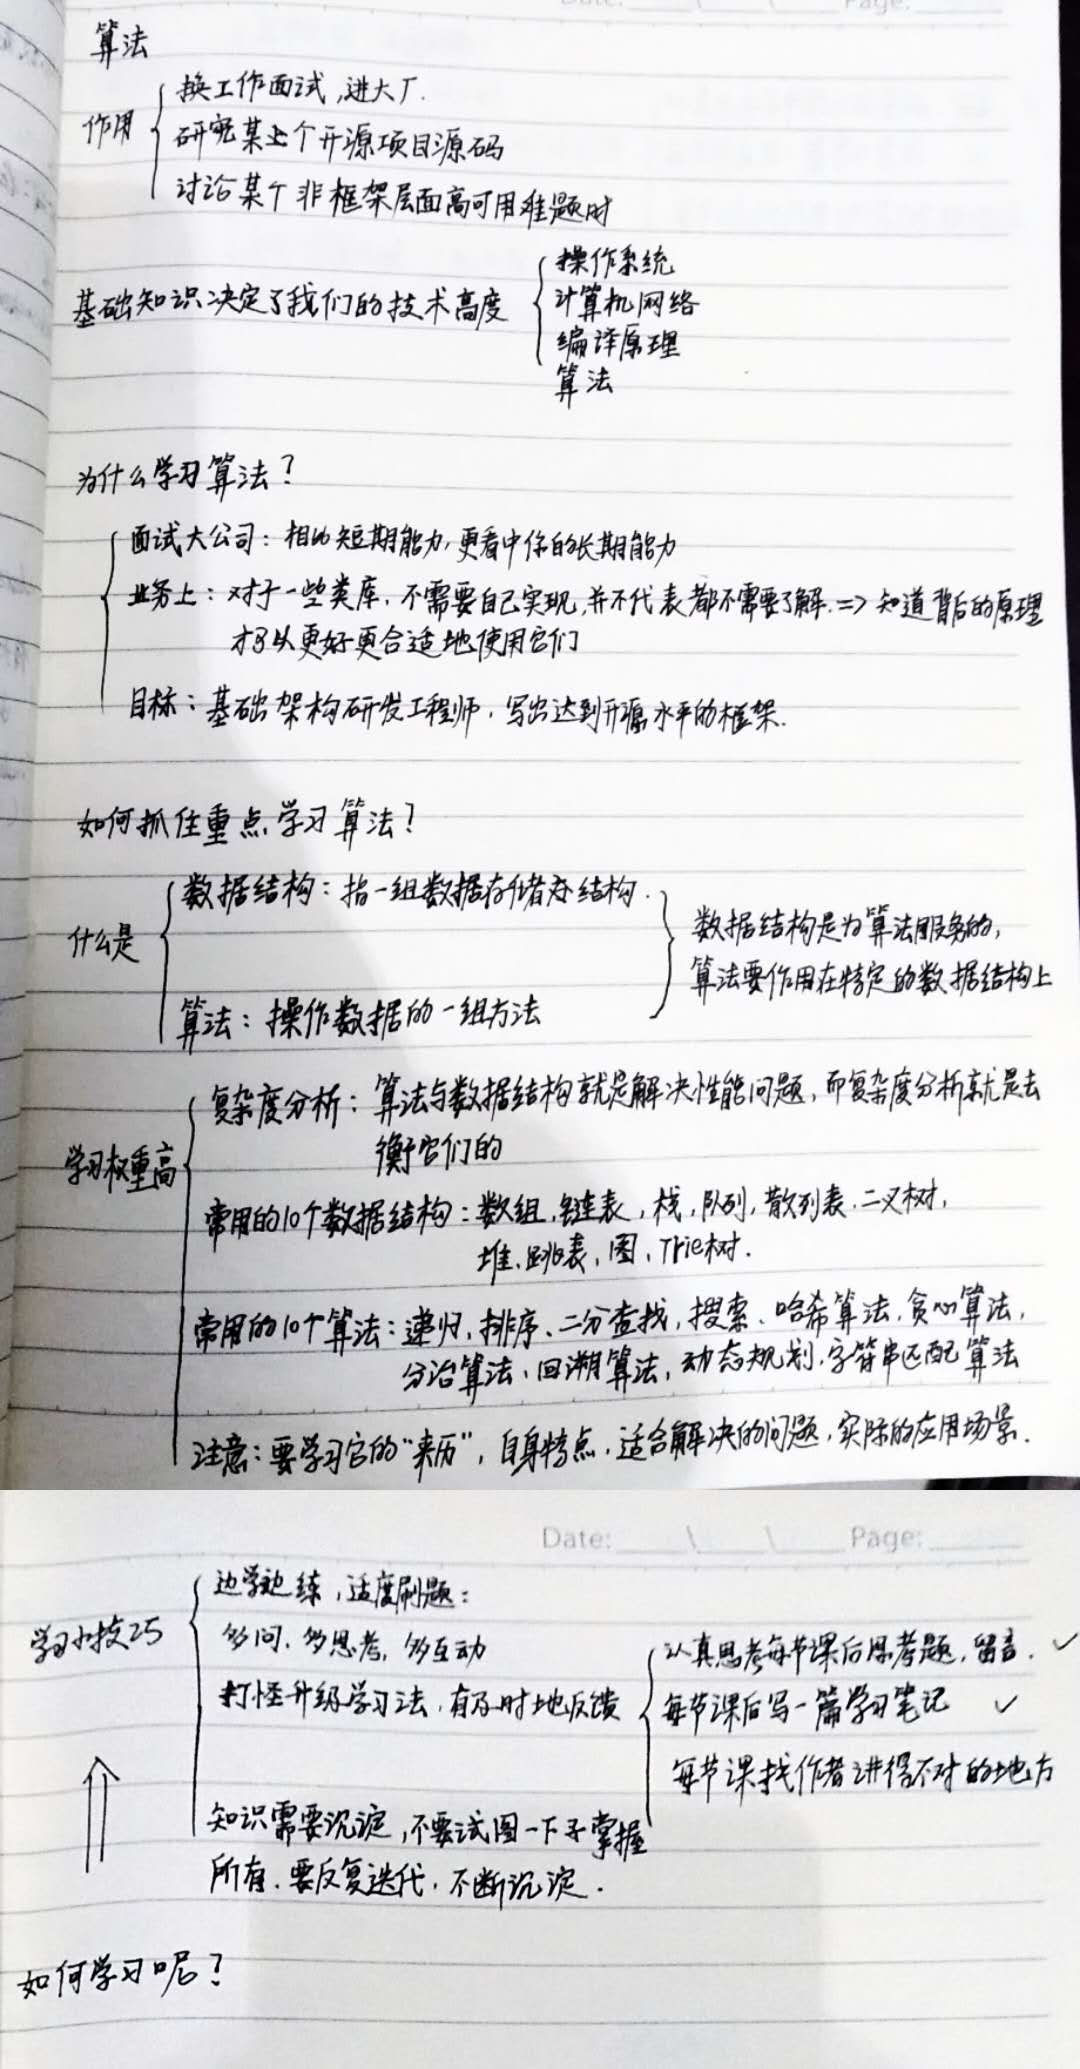 Date: Page:
算法
作用
换工作面试,进大厂.
研究某上个开源项目源码
讨论某个非框架层面高可用难题时
基础知识决定了我们的技术高度
操作系统
计算机网络
编译原理
算法
为什么学习算法?
面试大公司: 相比短期能力,更看中你的长期能力
业务上: 对于一些类库, 不需要自己实现,并不代表都不需要了解. => 知道背后的原理
才可以更好更合适地使用它们
目标: 基础架构研发工程师, 写出达到开源水平的框架.
如何抓住重点,学习算法?
什么是
数据结构: 指一组数据存储结构.
算法: 操作数据的一组方法
数据结构是为算法服务的,
算法要作用在特定的数据结构上
学习权重高
复杂度分析: 算法与数据结构就是解决性能问题, 而复杂度分析就是去
衡它们的
常用的10个数据结构: 数组,链表,栈,队列,散列表,二叉树,
堆、跳表,图,Trie树.
常用的10个算法: 递归,排序、二分查找,搜索、哈希算法,贪心算法,
分治算法、回溯算法,动态规划,字符串匹配算法
注意: 要学习它的“来历”, 自身特点, 适合解决的问题, 实际的应用场景.
Date: \ \ Page:
学习小技巧
边学边练,适度刷题:
多问,多思考,多互动
打怪升级学习法,有及时地反馈
认真思考每节课后思考题,留言. ✓
每节课后写一篇学习笔记 ✓
每节课找作者讲得不对的地方
知识需要沉淀,不要试图一下子掌握
所有.要反复迭代,不断沉淀.
如何学习呢?